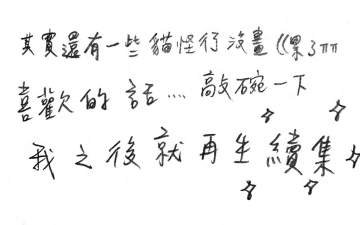 其實還有一些貓怪行沒畫((累了ππ
喜歡的話....敲碗一下
我之後就再生續集